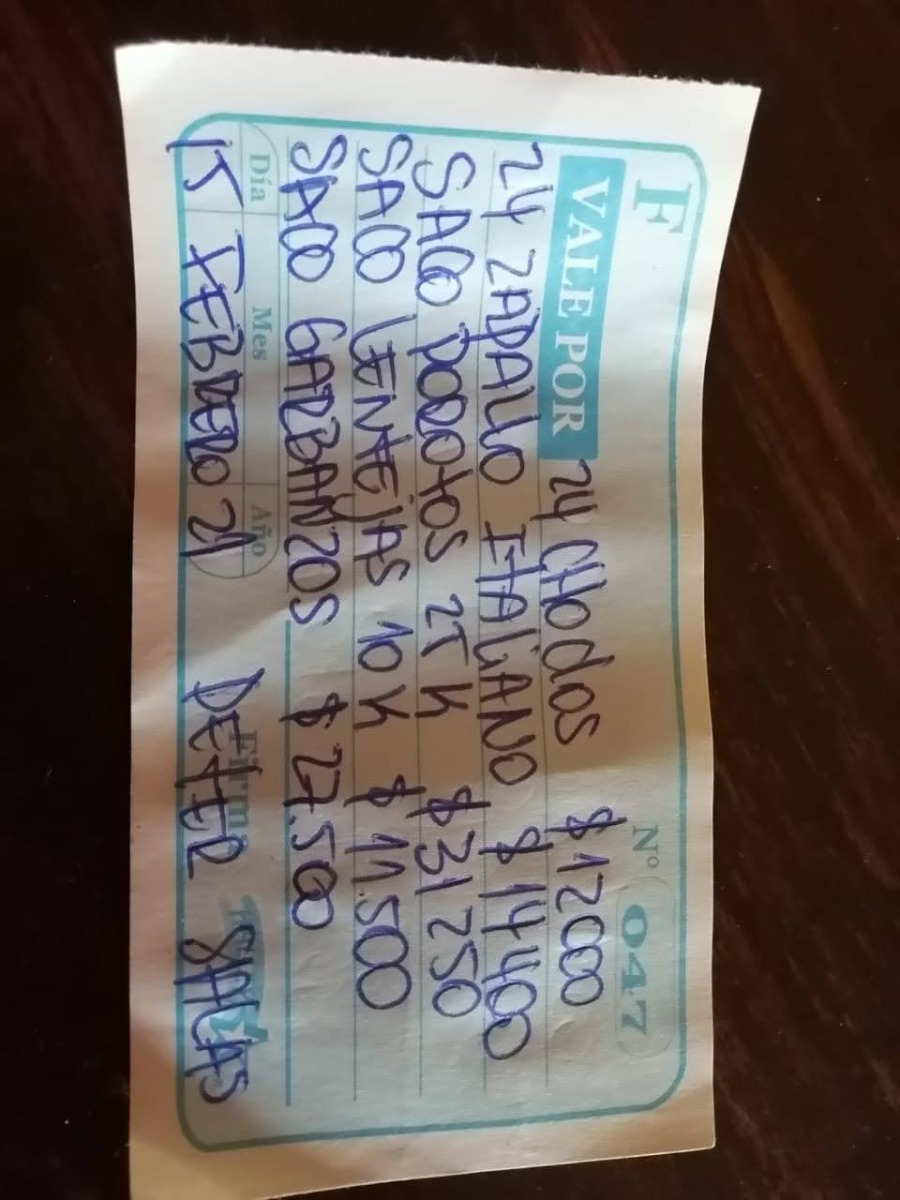 F
Nº 047
VALE POR 24 CHOCLOS $12000
24 ZAPALLO ITALIANO $14400
SACO POROTOS 25 K $31250
SACO LENTEJAS 10 K $11.500
SACO GARBANZOS $27.500
Día Mes Año
15 FEBRERO 21
Firma
PETER SALAS